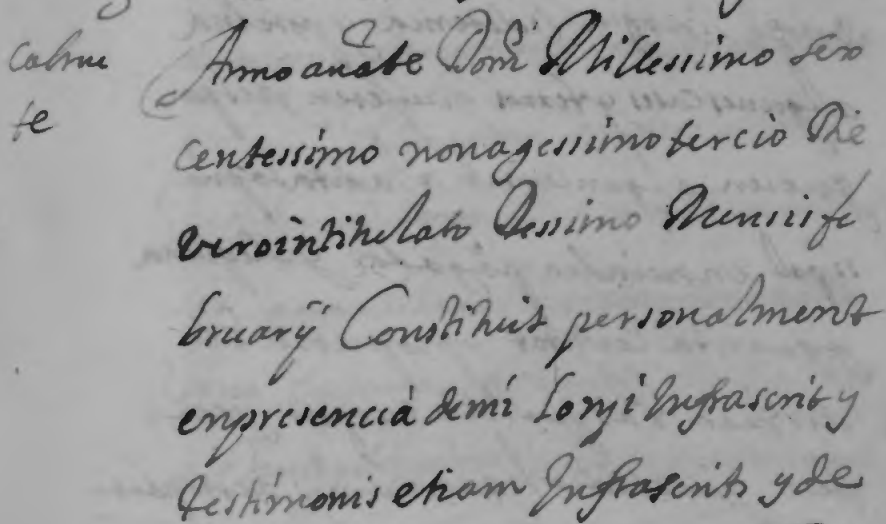 Cabrue
te
Anno anate Dom Millessimo sex
centessimo nonagessimo tercio Die
vero intitulato Dessimo Mensis fe
bruarÿ Constituit personalment
en presencia de mi Infrascrit y
testimonis etiam Infrascrits y de